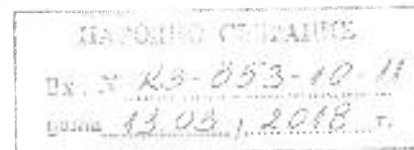 НАРОДНО СЪБРАНИЕ
Вх. № К3-853-10-11
дата 13.03, 2018 г.